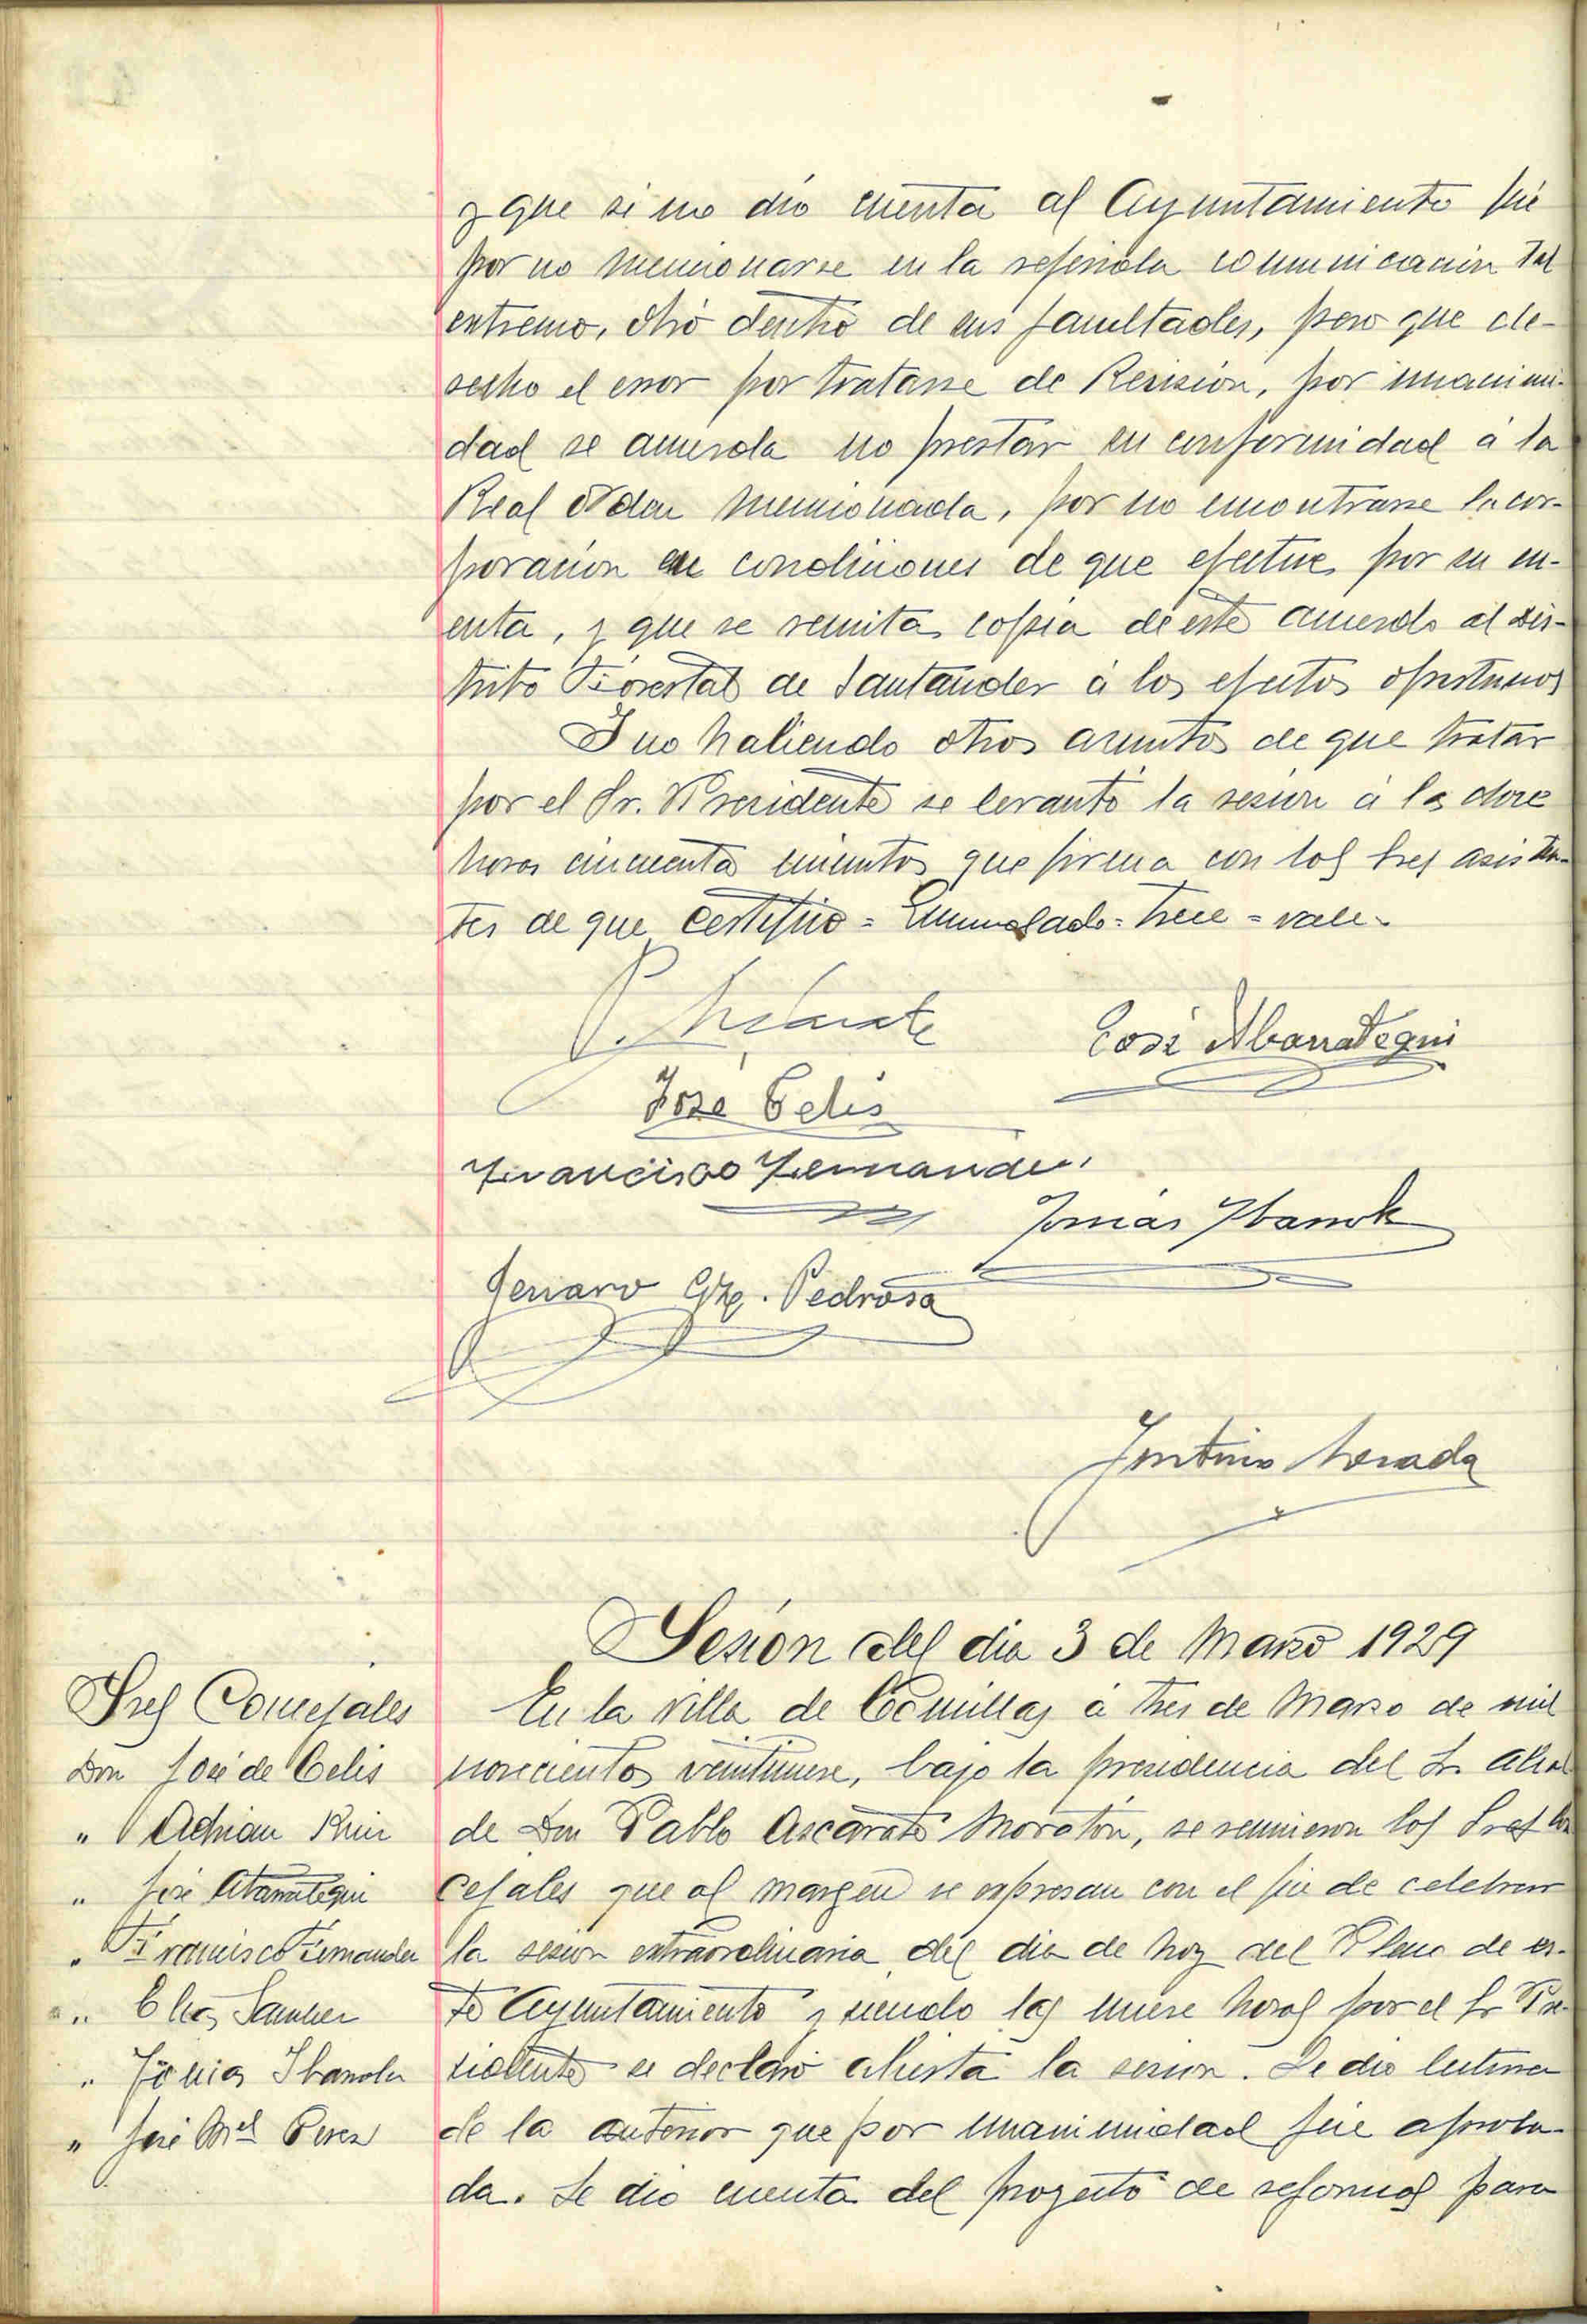 y que si no dió cuenta al Ayuntamiento fué
por no mencionarse en la referida comunicación tal
extremo, obró dentro de sus facultades, pero que de-
secho el error por tratarse de Revisión, por unanimi-
dad se acuerda no prestar su conformidad á la
Real orden mencionada, por no encontrarse la cor-
poración en condiciones de que efectue por su cu-
enta, y que se remita copia de este acuerdo al Dis-
trito Forestal de Santander á los efectos oportunos
Y no habiendo otros asuntos de que tratar
por el Sr. Presidente se levantó la sesión á las doce
horas cincuenta minutos que firma con los Sres asisten-
tes de que certifico = Enmendado = trece = vale.
P. Ascarate
José Abarrategui
José Celis
Francisco Fernandez
Tomás Ybarrola
Jenaro Gz. Pedrosa
Sesión del dia 3 de Marzo 1929
Sres Concejales
Don José de Celis
" Adrian Ruiz
" José Abarrategui
" Francisco Fernandez
" Elias Sanchez
" Tomas Ibarrola
" José Mel Perez
En la villa de Comillas á tres de Marzo de mil
novecientos veintinueve, bajo la presidencia del Sr. Alcal
de Don Pablo Ascarate Moratón, se reunieron los Sres Con
cejales que al margen se expresan con el fin de celebrar
la sesion extraordinaria del dia de hoy del Pleno de es-
te Ayuntamiento y siendo las nueve horas por el Sr Pre-
sidente se declaró abierta la sesion. Se dio lectura
de la anterior que por unanimidad fue aproba-
da. Se dio cuenta del proyecto de reformas para